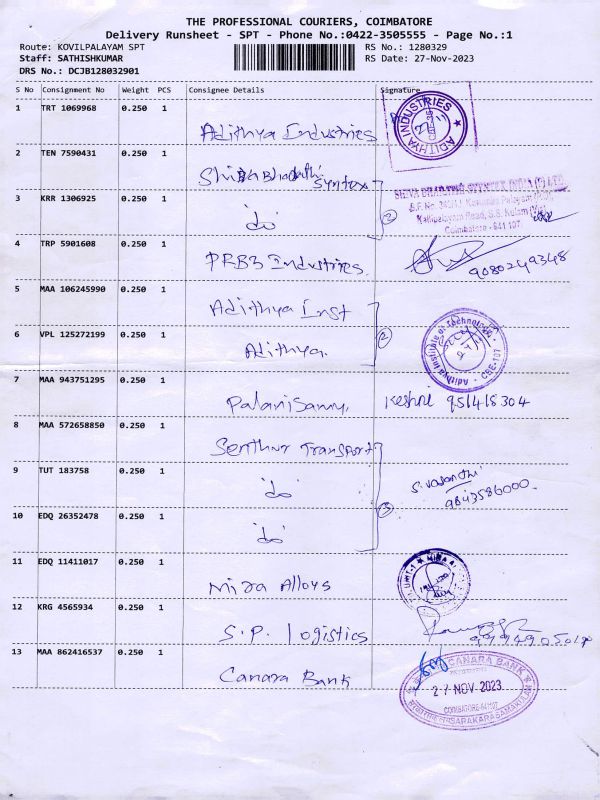 THE PROFESSIONAL COURIERS, COIMBATORE
Delivery Runsheet - SPT - Phone No.:0422-3505555 - Page No.:1
Route: KOVILPALAYAM SPT
RS No.: 1280329
Staff: SATHISHKUMAR
RS Date: 27-Nov-2023
DRS No.: DCJB128032901
S No Consignment No Weight PCS Consignee Details Signature
1 TRT 1069968 0.250 1
Adithya Industries
ADITHYA INDUSTRIES
2 TEN 7590431 0.250 1
Syntex
3 KRR 1306925 0.250 1
do
2
Coimbatore - 641 107.
4 TRP 5901608 0.250 1
PRB3 Industries.
9080249348
5 MAA 106245990 0.250 1
Adithya Inst
6 VPL 125272199 0.250 1
Adithya
2
Adithya Institute of Technology
CBE-107
7 MAA 943751295 0.250 1
Palanisamy,
8 MAA 572658850 0.250 1
Senthur Transport
9 TUT 183758 0.250 1
do
S. Vasanthi
9843586000
10 EDQ 26352478 0.250 1
do
3
11 EDQ 11411017 0.250 1
Mira Alloys
12 KRG 4565934 0.250 1
S.P. Logistics
13 MAA 862416537 0.250 1
Canara Bank
CANARA BANK
27 NOV 2023
COIMBATORE-641107